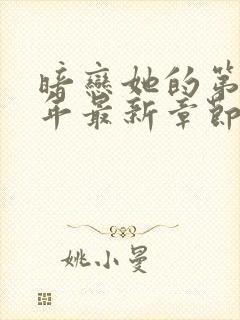 暗恋她的第
年最新章节
姚小曼